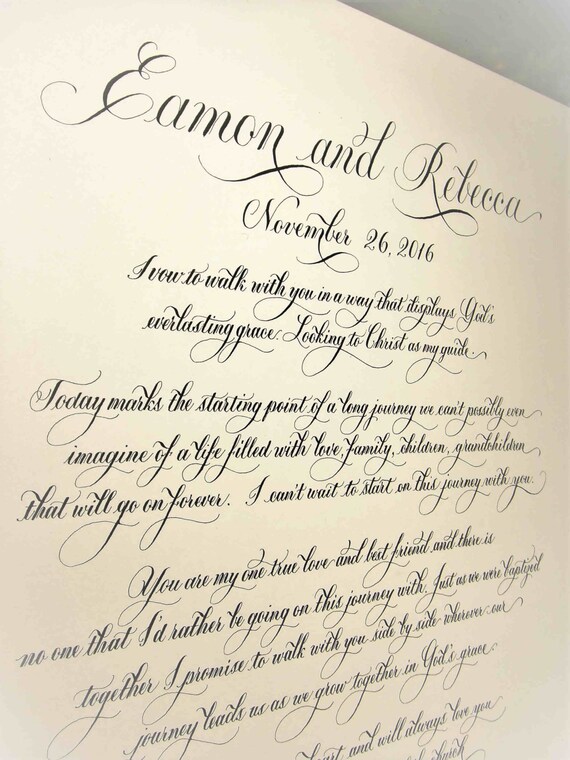 Eamon and Rebecca
November 26, 2016
I vow to walk with you in a way that displays God's
everlasting grace. Looking to Christ as my guide.
Today marks the starting point of a long journey we can't possibly even
imagine of a life filled with love, family, children, grandchildren
that will go on forever. I can't wait to start on this journey with you.
You are my one true love and best friend and there is
no one that I'd rather be going on this journey with. Just as we were baptized
together I promise to walk with you side by side wherever our
journey leads us as we grow together in God's grace
and will always love you
church